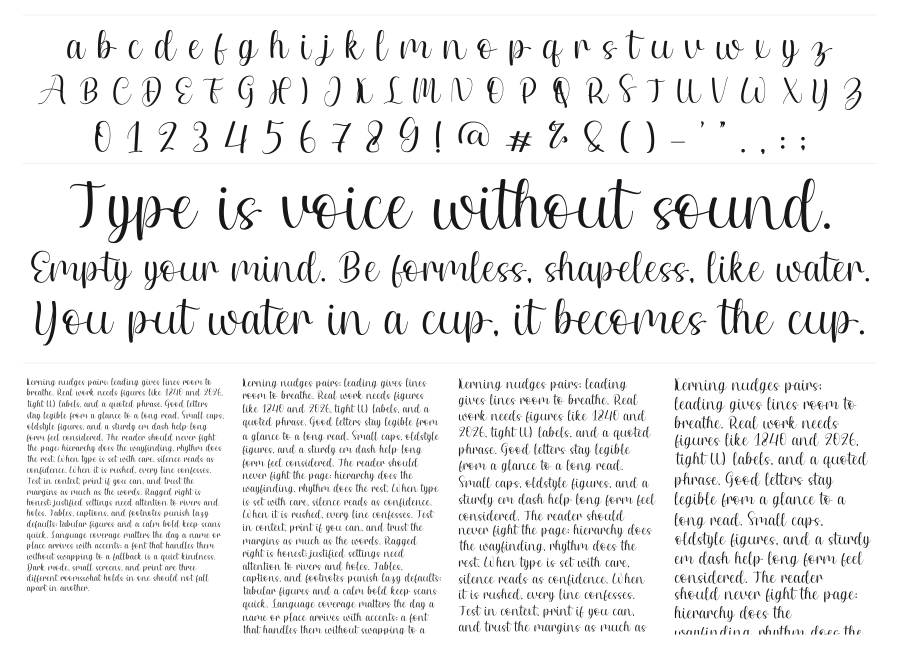 a b c d e f g h i j k l m n o p q r s t u v w x y z
A B C D E F G H I J K L M N O P Q R S T U V W X Y Z
0 1 2 3 4 5 6 7 8 9 ! @ # % & ( ) - ' " . , : ;
Type is voice without sound.
Empty your mind. Be formless, shapeless, like water.
You put water in a cup, it becomes the cup.
Kerning nudges pairs: leading gives lines room to
breathe. Real work needs figures like 1840 and 2026,
tight UI labels, and a quoted phrase. Good letters
stay legible from a glance to a long read. Small caps,
oldstyle figures, and a sturdy em dash help long
form feel considered. The reader should never fight
the page: hierarchy does the wayfinding, rhythm does
the rest. When type is set with care, silence reads as
confidence. When it is rushed, every line confesses.
Test in context, print if you can, and trust the
margins as much as the words. Ragged right is
honest:justified settings need attention to rivers and
holes. Tables, captions, and footnotes punish lazy
defaults: tabular figures and a calm bold keep scans
quick. Language coverage matters the day a name or
place arrives with accents: a font that handles them
without swapping to a fallback is a quiet kindness.
Dark mode, small screens, and print are three
different roomswhat holds in one should not fall
apart in another.
Kerning nudges pairs: leading gives lines
room to breathe. Real work needs figures
like 1840 and 2026, tight UI labels, and a
quoted phrase. Good letters stay legible from
a glance to a long read. Small caps, oldstyle
figures, and a sturdy em dash help long
form feel considered. The reader should
never fight the page: hierarchy does the
wayfinding, rhythm does the rest. When type
is set with care, silence reads as confidence.
When it is rushed, every line confesses. Test
in context, print if you can, and trust the
margins as much as the words. Ragged
right is honest:justified settings need
attention to rivers and holes. Tables,
captions, and footnotes punish lazy defaults:
tabular figures and a calm bold keep scans
quick. Language coverage matters the day a
name or place arrives with accents: a font
that handles them without swapping to a
Kerning nudges pairs: leading
gives lines room to breathe. Real
work needs figures like 1840 and
2026, tight UI labels, and a quoted
phrase. Good letters stay legible
from a glance to a long read.
Small caps, oldstyle figures, and a
sturdy em dash help long form feel
considered. The reader should
never fight the page: hierarchy does
the wayfinding, rhythm does the
rest. When type is set with care,
silence reads as confidence. When
it is rushed, every line confesses.
Test in context, print if you can,
and trust the margins as much as
Kerning nudges pairs:
leading gives lines room to
breathe. Real work needs
figures like 1840 and 2026,
tight UI labels, and a quoted
phrase. Good letters stay
legible from a glance to a
long read. Small caps,
oldstyle figures, and a sturdy
em dash help long form feel
considered. The reader
should never fight the page:
hierarchy does the
wayfinding, rhythm does the